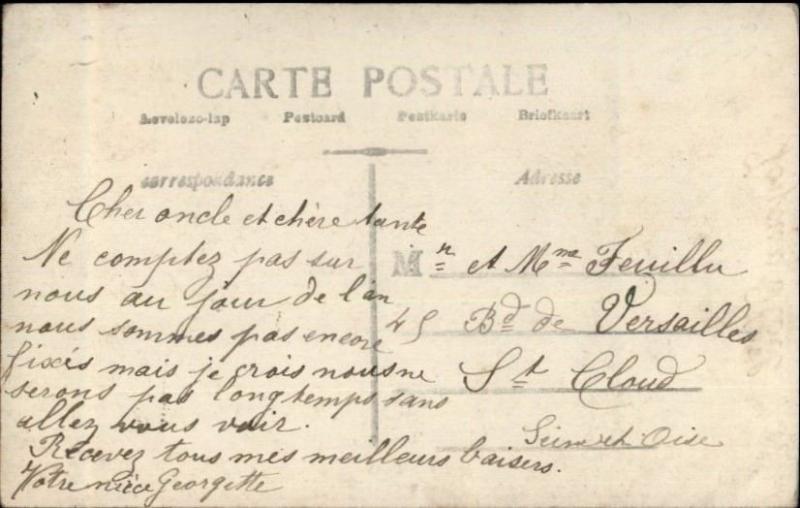 CARTE POSTALE
Levelezo-lap Postcard Postkarte Briefkaart
correspondance
Adresse
Cher oncle et chère tante
Ne comptez pas sur
nous au jour de l'an
nous sommes pas encore
fixés mais je crois nous ne
serons pas longtemps sans
allez vous voir.
Recevez tous mes meilleurs baisers.
Votre nièce Georgette
Mr et Mme Feuillu
45 Bd de Versailles
St Cloud
Seine et Oise